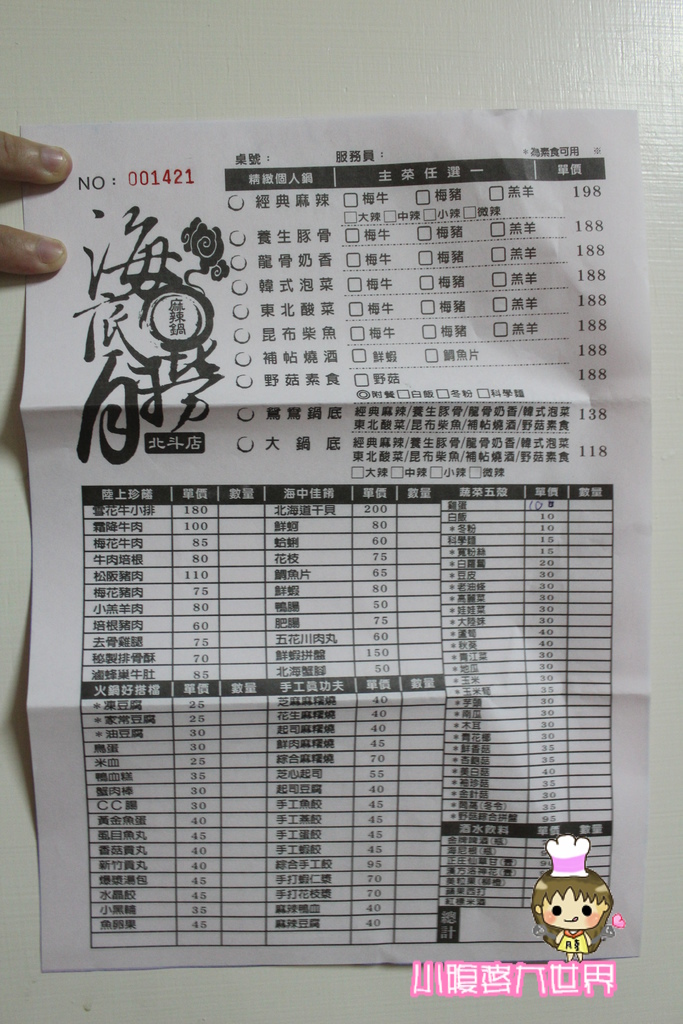 NO：001421
桌號：
服務員：
*為素食可用 ※
海底撈
麻辣鍋
北斗店
精緻個人鍋 主菜任選一 單價
經典麻辣 梅牛 梅豬 羔羊 198
大辣 中辣 小辣 微辣
養生豚骨 梅牛 梅豬 羔羊 188
龍骨奶香 梅牛 梅豬 羔羊 188
韓式泡菜 梅牛 梅豬 羔羊 188
東北酸菜 梅牛 梅豬 羔羊 188
昆布柴魚 梅牛 梅豬 羔羊 188
補帖燒酒 鮮蝦 鯛魚片 188
野菇素食 野菇 188
◎附餐 白飯 冬粉 科學麵
鴛鴦鍋底 經典麻辣/養生豚骨/龍骨奶香/韓式泡菜 138
東北酸菜/昆布柴魚/補帖燒酒/野菇素食
大鍋底 經典麻辣/養生豚骨/龍骨奶香/韓式泡菜 118
東北酸菜/昆布柴魚/補帖燒酒/野菇素食
大辣 中辣 小辣 微辣
陸上珍饈 單價 數量
雪花牛小排 180
霜降牛肉 100
梅花牛肉 85
牛肉培根 80
松阪豬肉 110
梅花豬肉 75
小羔羊肉 80
培根豬肉 60
去骨雞腿 75
秘製排骨酥 70
滷蜂巢牛肚 85
火鍋好搭檔 單價 數量
*凍豆腐 25
*家常豆腐 25
*油豆腐 30
鳥蛋 30
米血 25
鴨血糕 35
蟹肉棒 30
CC腸 30
黃金魚蛋 40
虱目魚丸 40
香菇貢丸 40
新竹貢丸 40
爆漿湯包 45
水晶餃 45
小黑輪 35
魚卵果 45
海中佳餚 單價 數量
北海道干貝 200
鮮蚵 80
蛤蜊 60
花枝 75
鯛魚片 65
鮮蝦 80
鴨腸 50
肥腸 75
五花川肉丸 60
鮮蝦拼盤 150
北海蟹腳 50
手工真功夫 單價 數量
芝麻麻糬燒 40
花生麻糬燒 40
起司麻糬燒 40
鮮肉麻糬燒 45
綜合麻糬燒 70
芝心起司 55
起司豆腐 40
手工魚餃 45
手工燕餃 45
手工蛋餃 45
手工蝦餃 45
綜合手工餃 95
手打蝦仁漿 70
手打花枝漿 70
麻辣鴨血 40
麻辣豆腐 40
蔬菜五穀 單價 數量
雞蛋 10
白飯 10
*冬粉 10
科學麵 15
*寬粉絲 15
*白蘿蔔 20
*豆皮 30
*老油條 30
*高麗菜 30
*娃娃菜 30
*大陸妹 30
*蘆筍 40
*秋葵 40
*青江菜 30
*地瓜 30
*玉米 30
*玉米筍 35
*芋頭 30
*南瓜 30
*木耳 30
*青花椰 30
*鮮香菇 35
*杏鮑菇 35
*美白菇 40
*袖珍菇 35
*金針菇 30
*茼蒿(冬令) 35
*野菇綜合拼盤 95
酒水飲料 單價 數量
金牌啤酒(瓶)
海尼根(瓶)
正庄仙草甘(壹)
漢方洛神花(壹)
美粒果(柳橙)
蘋果西打
紅標米酒
總計
小腹婆大世界